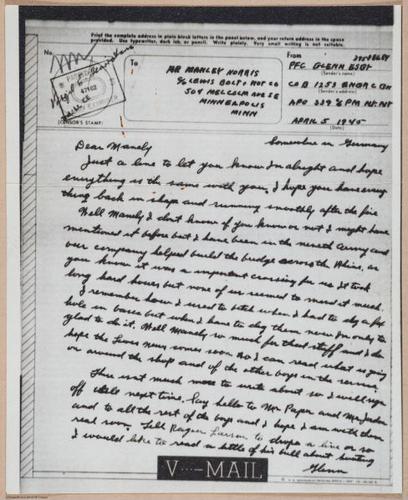 Print the complete address in plain block letters in the panel below, and your return address in the space
provided. Use typewriter, dark ink, or pencil. Write plainly. Very small writing is not suitable.
No.
To
MR MANLEY NORRIS
% LEWIS BOLT & NUT CO
504 MALCOLM AVE SE
MINNEAPOLIS
MINN
From
PFC GLENN
(Sender's name)
CO B 1253 ENGR C BN
(Sender's address)
APO 339 % PM NY. NY
APRIL 5 1945
(Date)
(CENSOR'S STAMP)
Somewhere in Germany
Dear Manely
Just a line to let you know I'm alright and hope
everything is the same with you. I hope you have every
thing back in shape and running smoothly after the fire
Well Manely I don't know if you know or not I might have
mentioned it before but I have been in the nineth Army and
our company helped build the bridge across the Rhine, as
you know it was a important crossing for us it took
long hard hours but none of us seemed to mind it much.
I remember how I used to bitch when I had to dig a fox
hole in basic but when I have to dig them now I'm only to
glad to do it. Well Manely so much for that stuff and I do
hope the Lewis News comes soon so I can read what is going
on around the shop and of the other boys in the service.
This isn't much more to write about so I will sign
off until next time. Say hello to Mr Paper and Mr
and to all the rest of the boys and I hope I am with them
real soon. Tell Ragner Larson to drope a line or so
I would like to read a little of his bull about hunting
Glenn
V···—MAIL